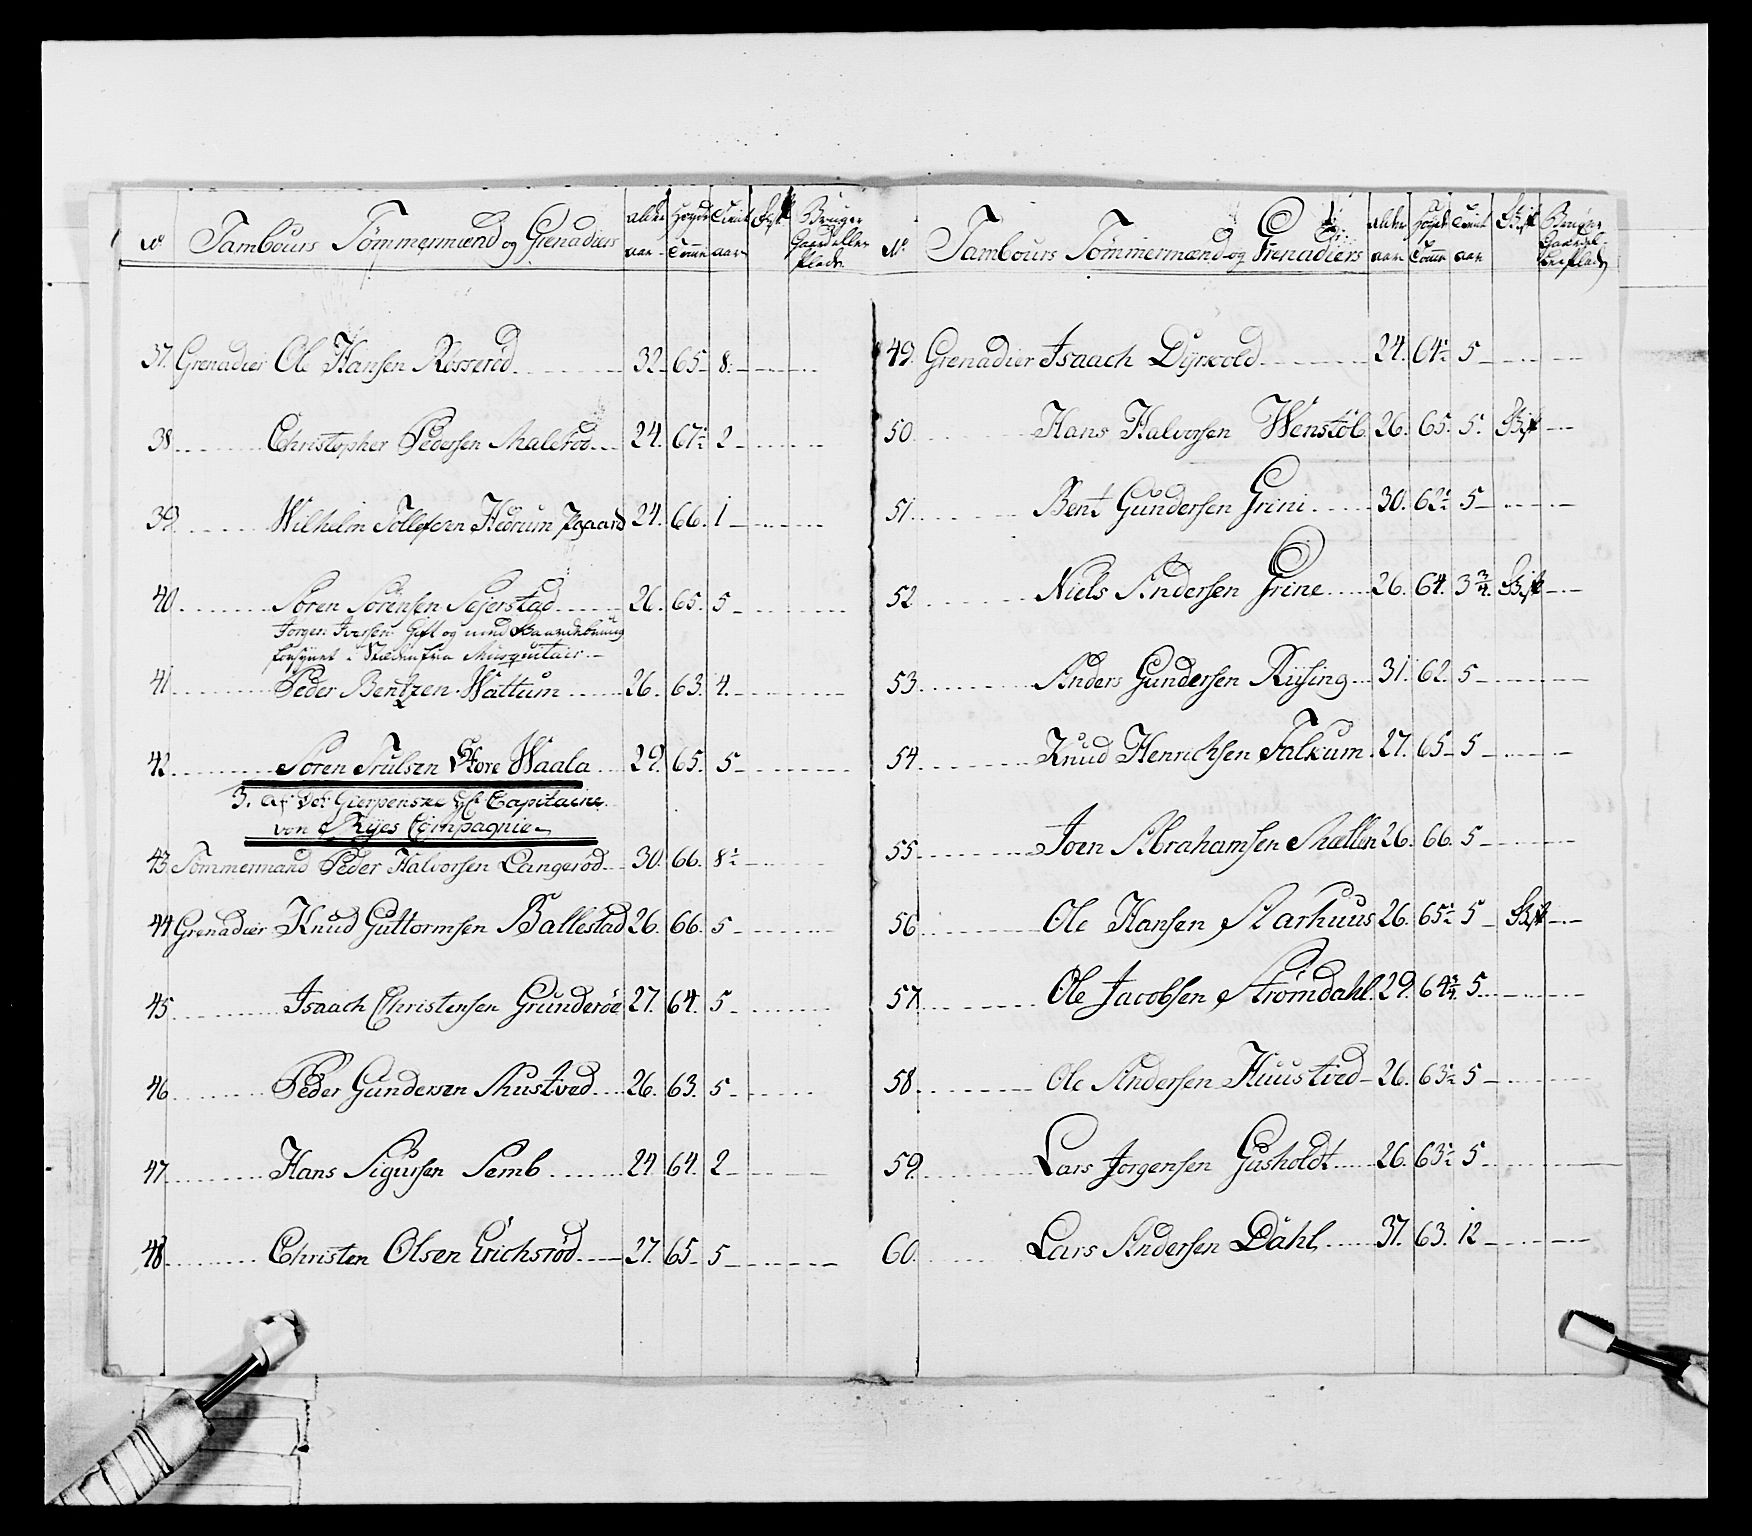 No. Tambours Tömmermænd og Grenadiers Alder aar Høyde Tomm Tient aar Gift Bruger Gaard eller Plads
37. Grenadier Ole Hansen Rösseröd 32 65 8
38 Christopher Pedersen Maleröd 24. 67½ 2
39 Wilhelm Tollefsen Hedrum Pgaard 24. 66. 1
40 Sören Sörensen Sejerstad 26. 65. 5
Jorgen Iversen Gift og med
41 Peder Bentzen Wattum 26. 63. 4.
42 Sören Trulsen Store Waala 29. 65. 5
3. af Det Gierpenske Capitaine
von Kyes Compagnie
43 Tömmermand Peder Halvorsen Langeröd 30. 66. 8½
44 Grenadier Knud Guttormsen Ballestad 26. 66. 5
45 Isaach Christensen Gunderöe 27. 64. 5
46 Peder Gundersen Skustved 26. 63. 5
47 Hans Sigursen Semb 24 64. 2
48 Christen Olsen Erichsröd 27. 65 5
No. Tambours Tömmermænd og Grenadiers Alder aar Høyde Tomm Tient aar Gift Bruger Gaard eller Plads
49. Grenadier Isaach Dyrkold 24. 64½ 5
50 Hans Halvorsen Wenstöb 26. 65. 5. Gift
51 Bent Gundersen Grini 30. 62½ 5
52 Niels Andersen Grine 26. 64. 3¾ Gift
53 Anders Gundersen Riising 31. 62. 5
54 Knud Henrichsen Falkum 27. 65 5
55 Joen Abrahamsen Mællen 26. 66. 5
56 Ole Hansen Aarhuus 26. 65½ 5 Gift
57 Ole Jacobsen Strömdahl 29. 64¾ 5
58 Ole Andersen Huustved 26. 63½ 5
59. Lars Jorgensen Gusholdt 26. 63½ 5
60. Lars Andersen Dahl 37. 63. 12